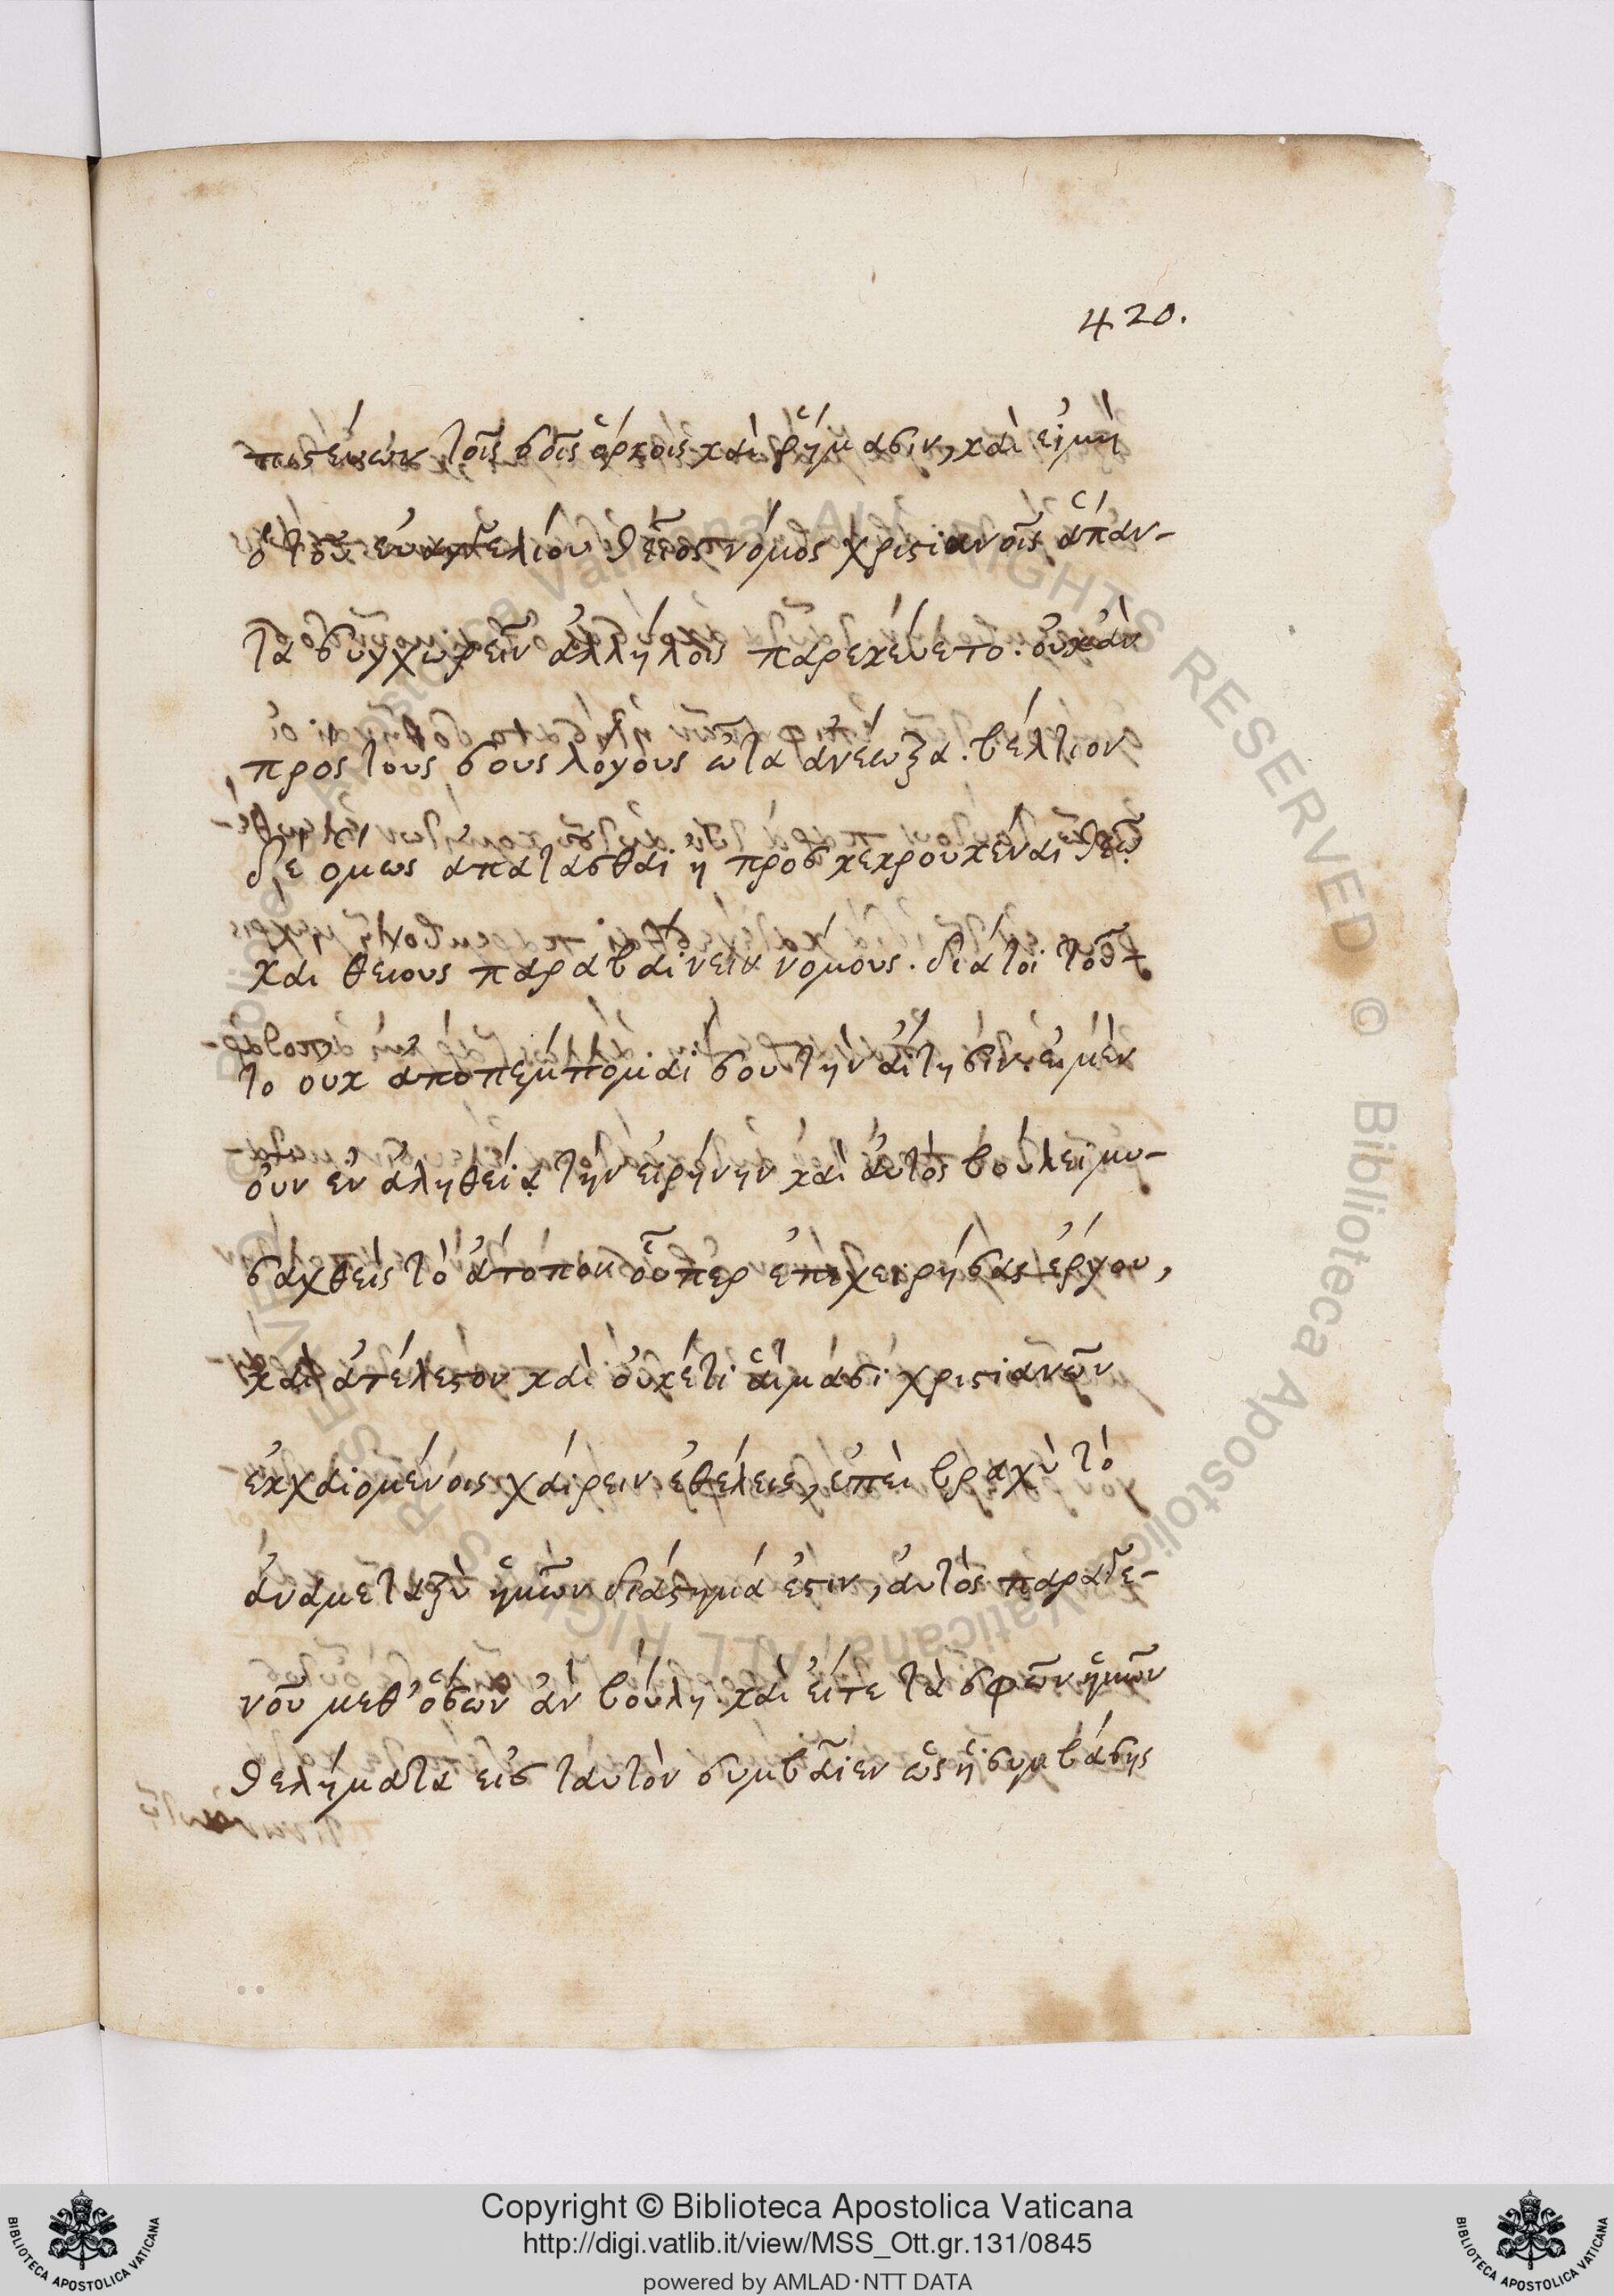 420.
πιστεύων τοῖς σοῖς ὅρκοις καὶ ῥήμασιν, καὶ εἰμὴ
ὁ τοῦ εὐαγγελίου θεῖος νόμος χριστιανοῖς ἅπαν-
τα συγχωρεῖν ἀλλήλοις παρεκέυετο. οὐκ ἂν
πρὸς τοὺς σοὺς λόγους ὦτα ἀνέωξα. βέλτιον
δὲ ὅμως ἀπατᾶσθαι ἢ προσκεκρουκέναι θεῷ
καὶ θείους παραβαίνειν νόμους. διάτοι τοῦ
το οὐκ ἀποπέμπομαί σου τὴν ἀίτησιν. εἰ μὲν
οὖν ἐν ἀληθείᾳ τὴν εἰρήνην καὶ ἀυτὸς βούλει μυ-
σαχθεὶς τὸ ἄτοπον οὗπερ ἐπεχειρήσας ἔργου,
καὶ ἀτέλεστον καὶ οὐκέτι αἵμασι χριστιανῶν
ἐκχαιομένοις χαίρειν ἐθέλεις, ἐπεὶ βραχὺ τὸ
ἀναμεταξὺ ἡμῶν διάστημά ἐστιν, ἀυτὸς παραγε-
νοῦ μεθ' ὅσων ἂν βούλη. καὶ εἴτε τὰ σφῶν ἡμῶν
θελήματα εἰσ ταυτὸν συμβαῖεν ὡς ἡ συμβάσης
Copyright © Biblioteca Apostolica Vaticana
http://digi.vatlib.it/view/MSS_Ott.gr.131/0845
powered by AMLAD·NTT DATA
BIBLIOTECA APOSTOLICA VATICANA
BIBLIOTECA APOSTOLICA VATICANA